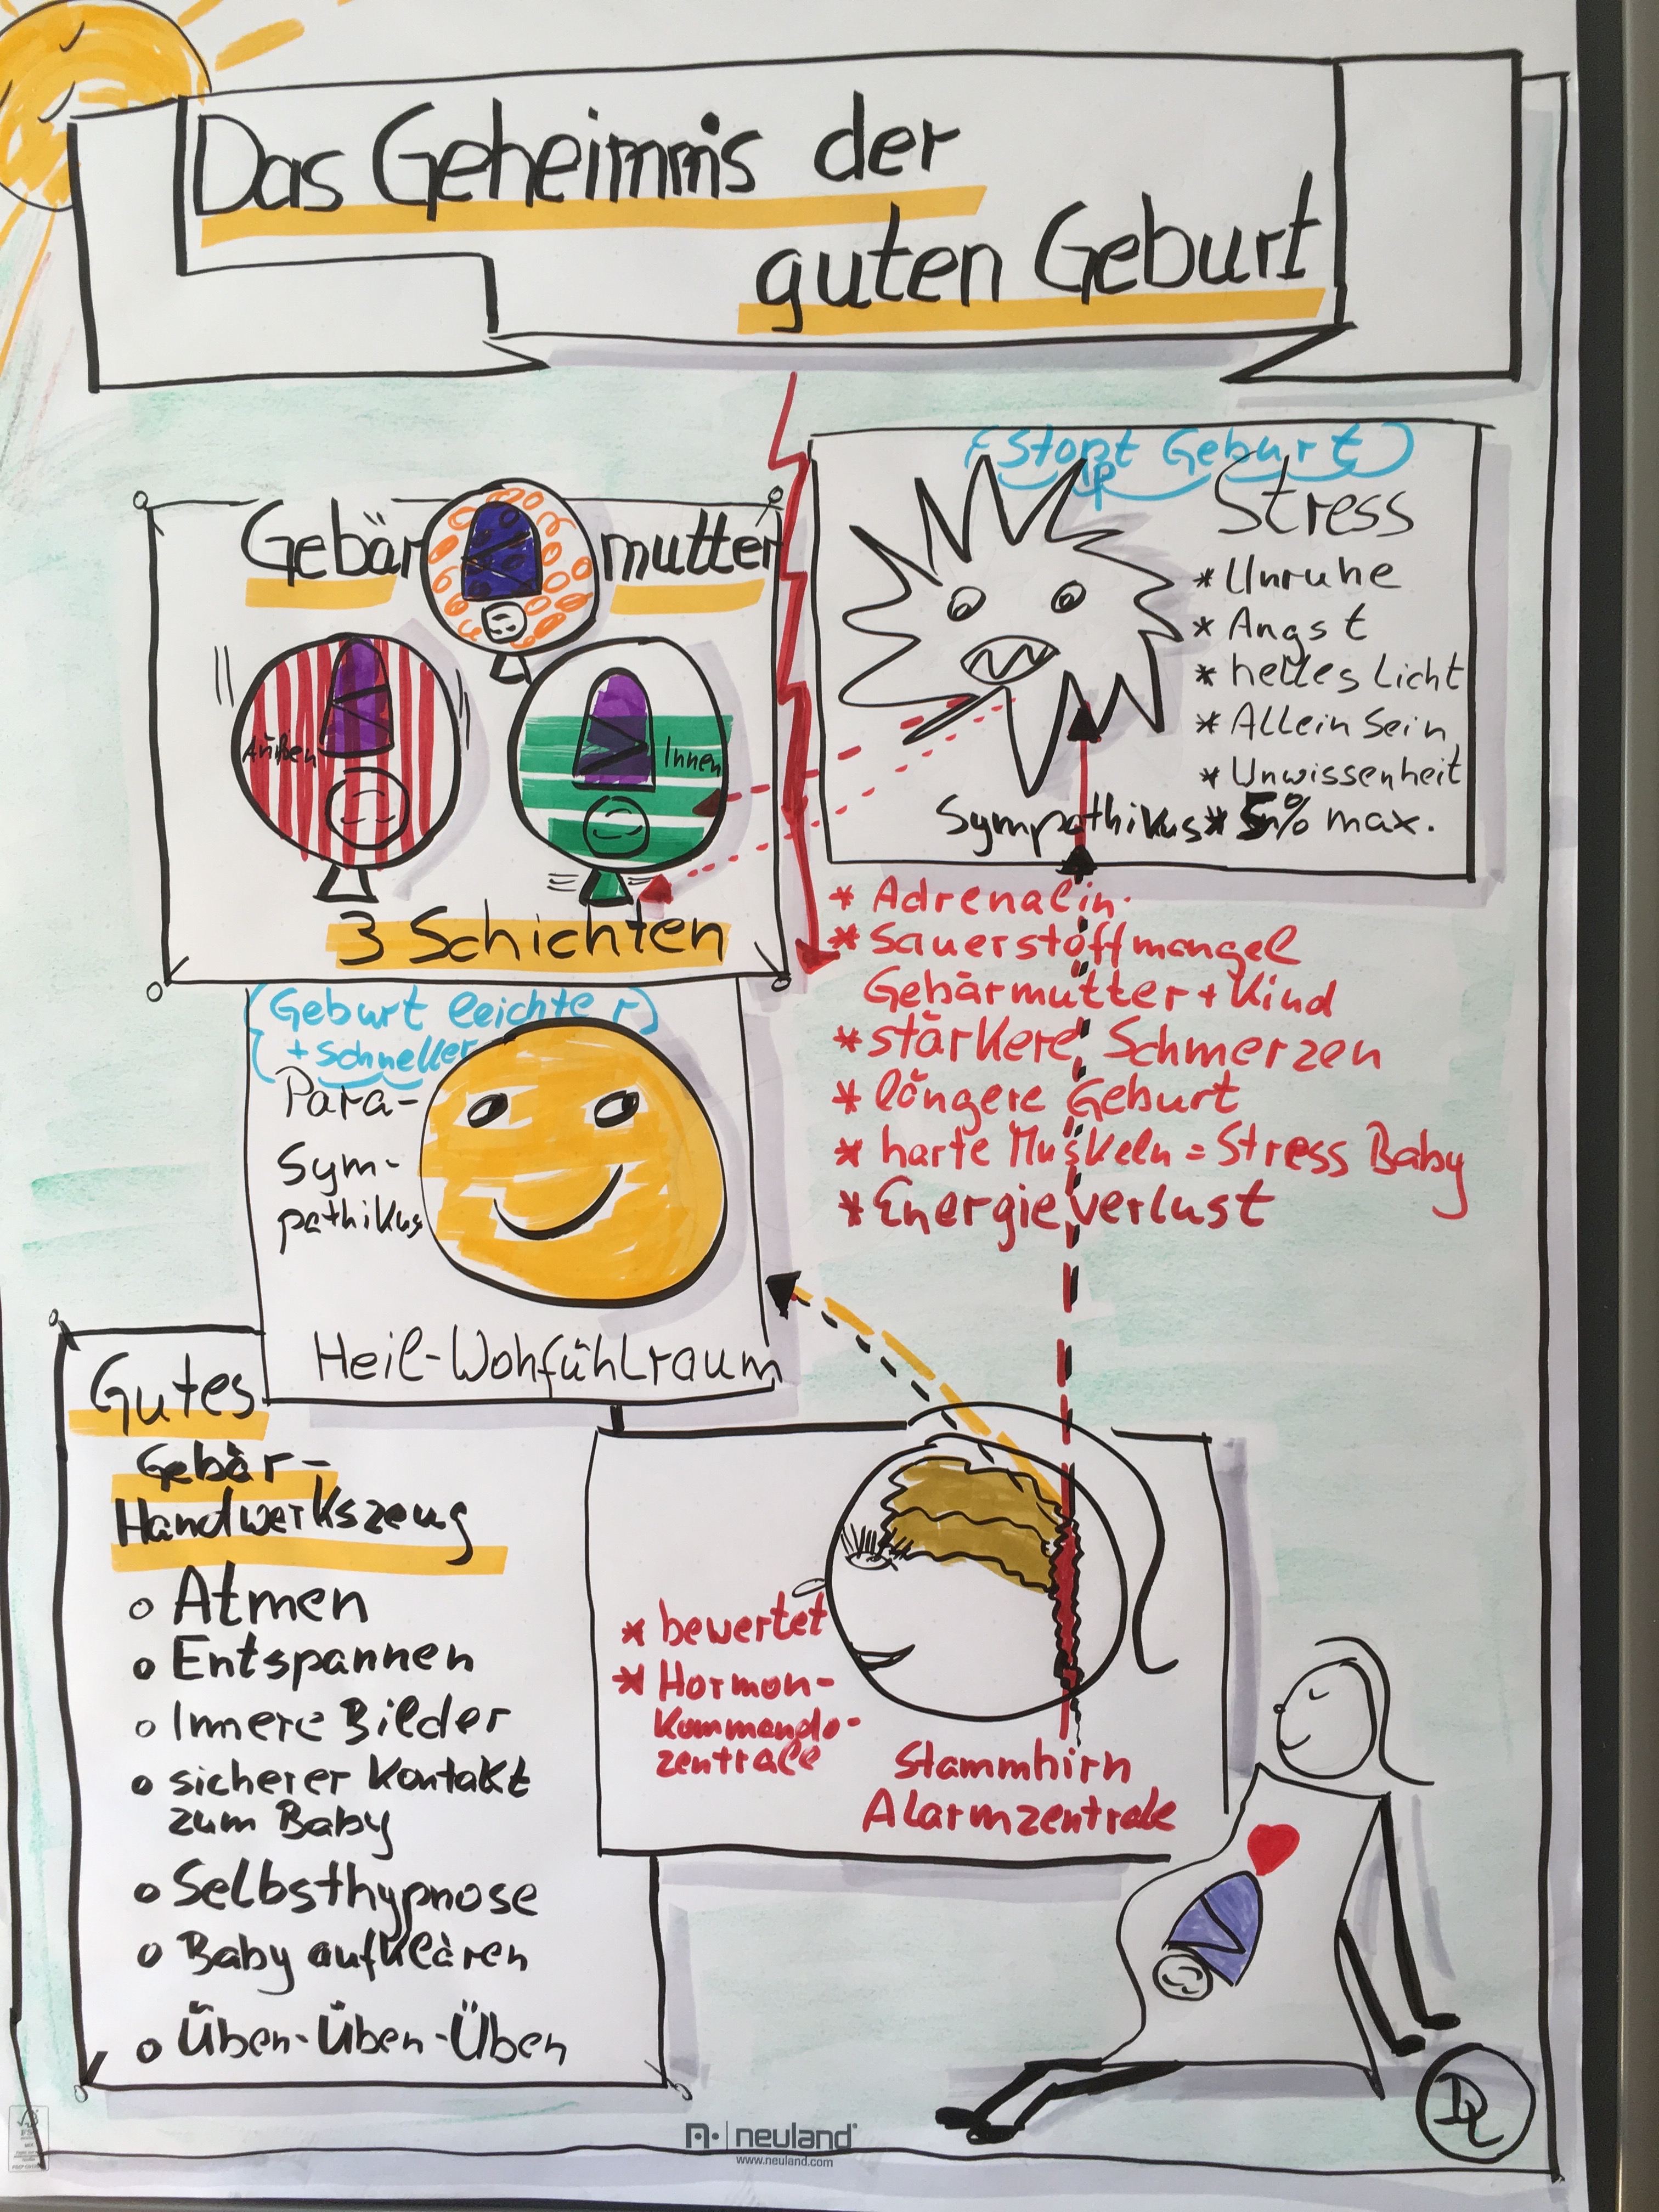 Das Geheimnis der
guten Geburt
Gebärmutter
Außen
Innen
3 Schichten
(Stoppt Geburt)
Stress
* Unruhe
* Angst
* helles Licht
* Allein Sein
* Unwissenheit
Sympathikus * 5% max.
* Adrenalin
* Sauerstoffmangel
Gebärmutter + Kind
* stärkere Schmerzen
* längere Geburt
* harte Muskeln = Stress Baby
* Energieverlust
(Geburt leichter)
(+ schneller
Para-
Sym-
pathikus
Heil-Wohfühlraum
Gutes
Gebär-
Handwerkszeug
o Atmen
o Entspannen
o Innere Bilder
o sicherer Kontakt
zum Baby
o Selbsthypnose
o Baby aufklären
o Üben-Üben-Üben
* bewertet
* Hormon-
Kommando-
zentrale
Stammhirn
Alarmzentrale
DL
neuland
www.neuland.com